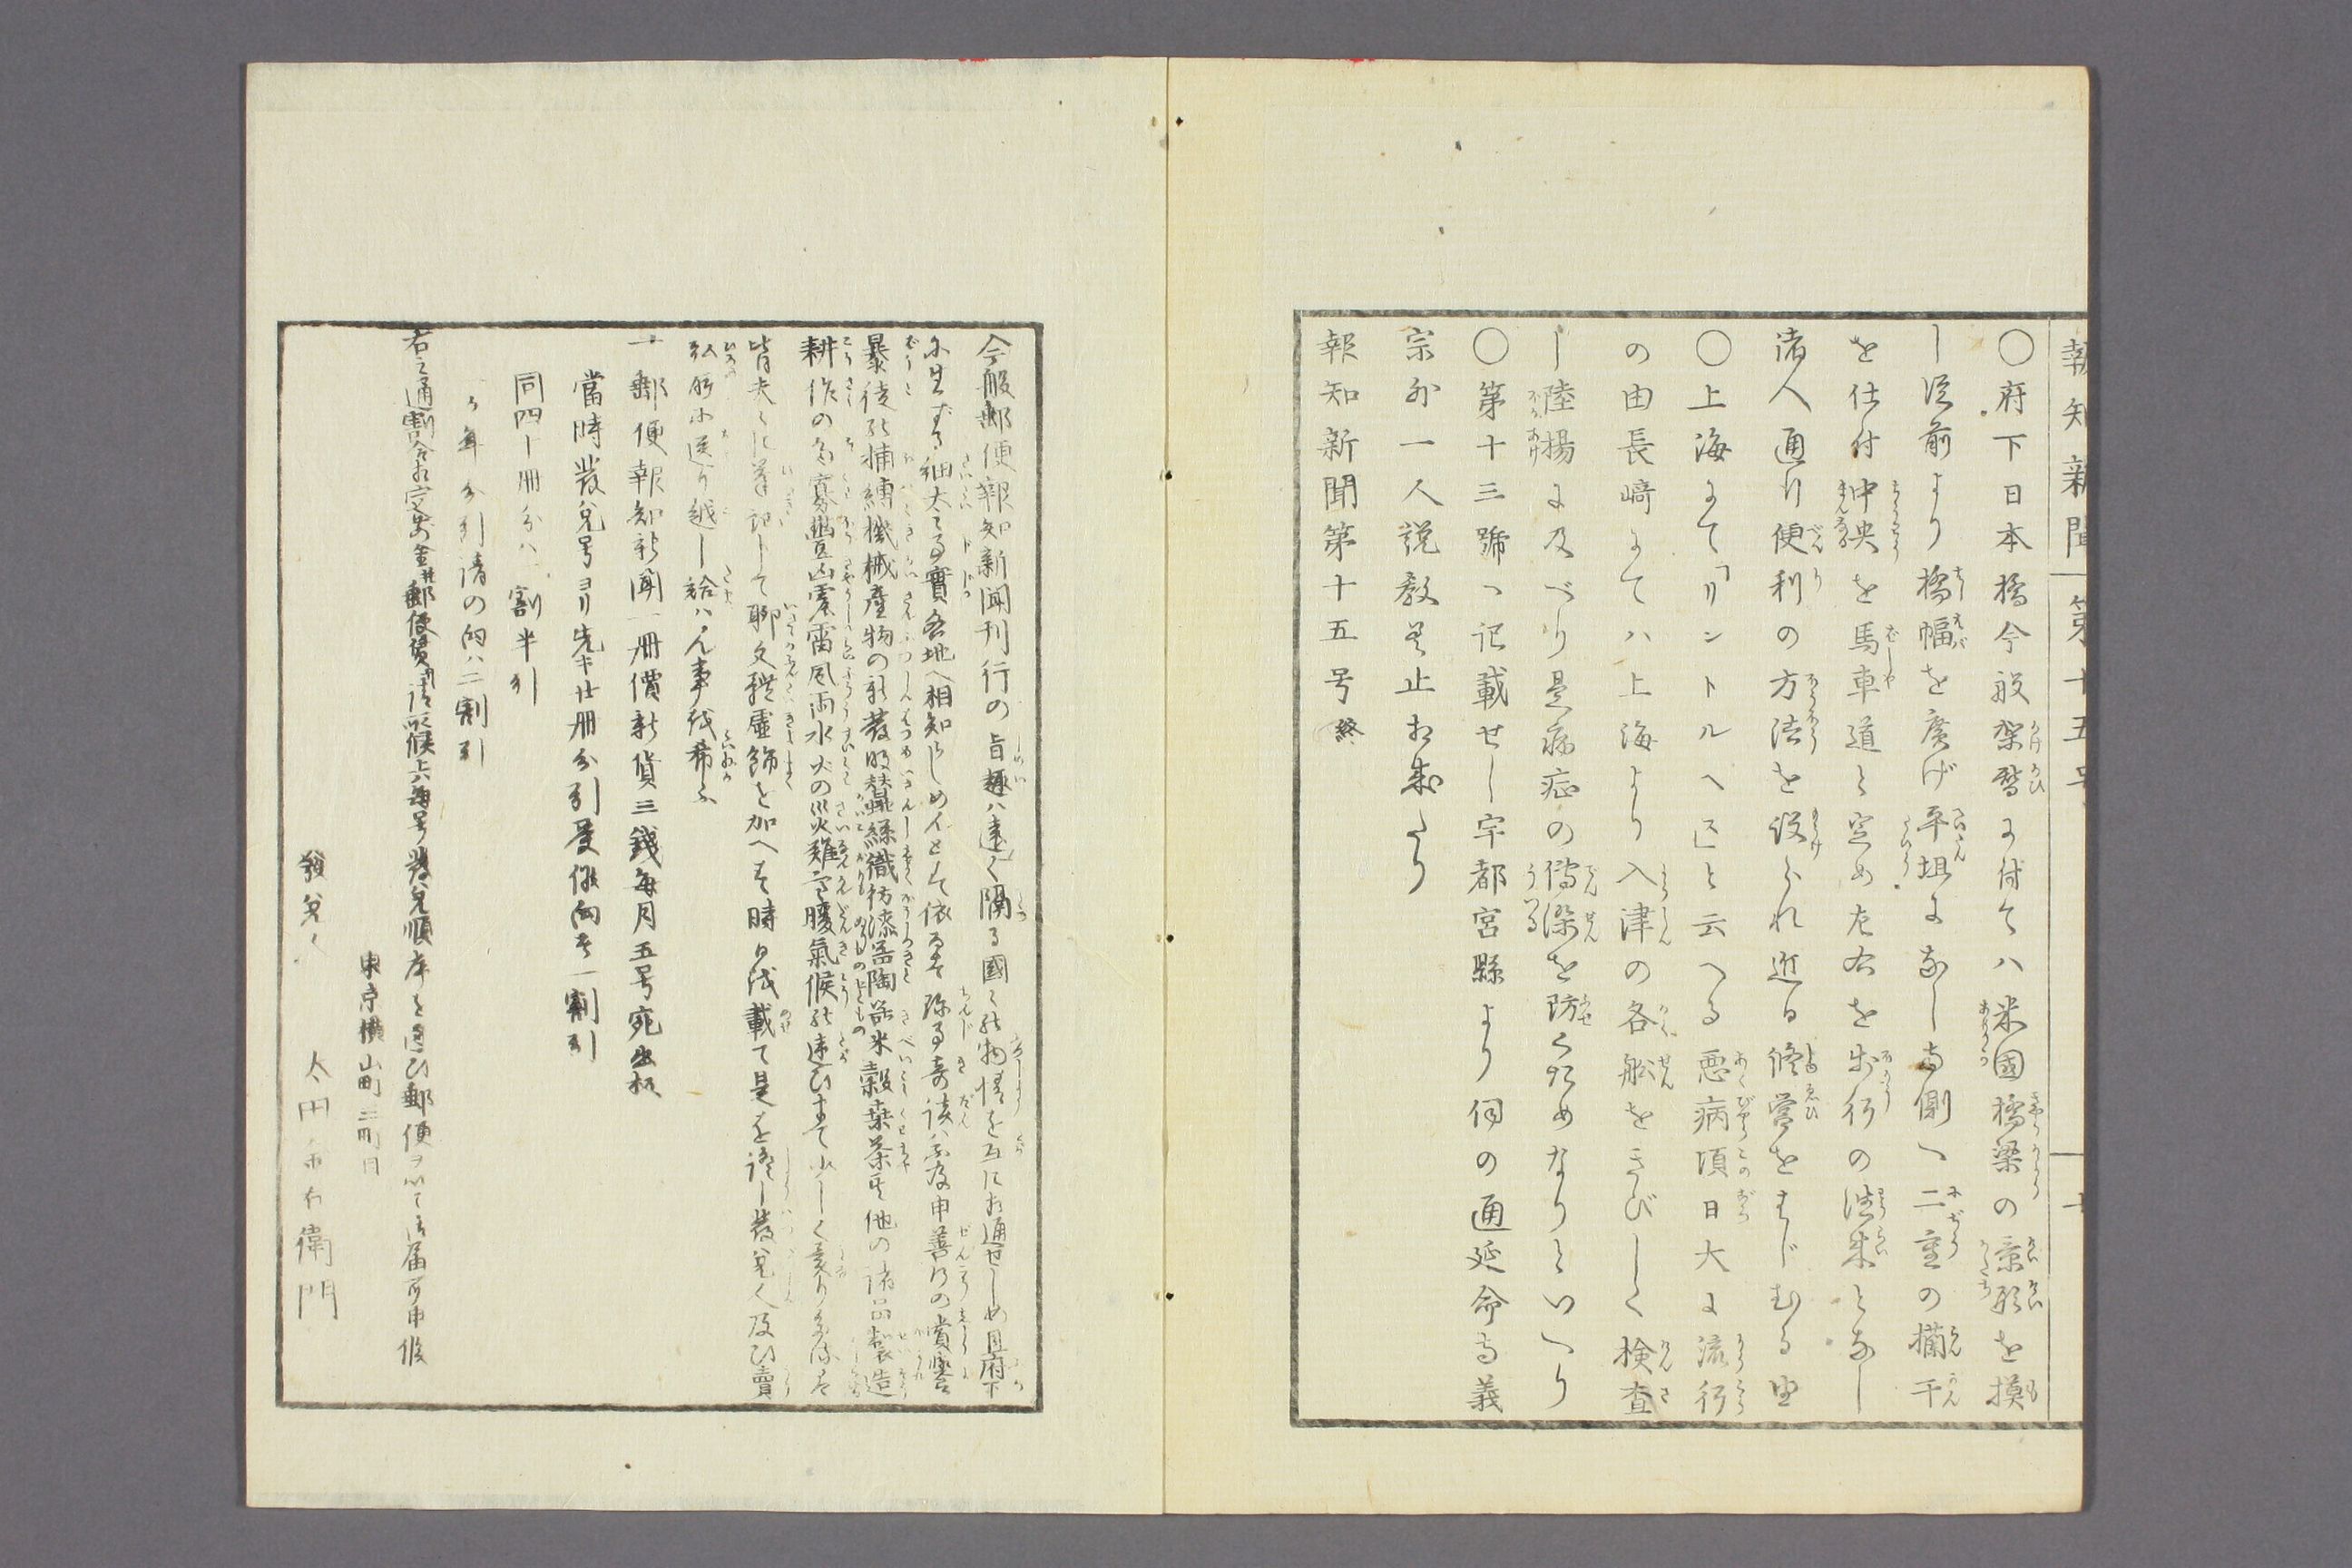 報知新聞 第十五号 十
〇府下日本橋今般架替に付てハ米國橋梁の景形を摸
し従前より橋幅を廣げ平坦になし両側へ二重の欄干
を仕付中央を馬車道と定め左右を歩行の往来となし
諸人通行便利の方法を設られ近日修営をはじむる由
〇上海にて「リントルヘスト」と云へる悪病頃日大に流行
の由長崎にてハ上海より入津の各舩をきびしく検査
し陸揚に及べり是病症の傳染を防くためなりといへり
〇第十三號へ記載せし宇都宮縣より伺の通延命寺義
宗外一人説教差止相成たり
報知新聞第十五号終
今般郵便報知新聞刊行の旨趣ハ遠く隔る國々の物情を互に相通せしめ且府下
に生ずる細大の事實各地へ相知らしめんとす依る 珍事奇談ハ 申善行の賞譽
暴徒の捕縛機械産物の新發明蚕絲織物漆器陶器米穀桑茶其他の諸品製造
耕作の 豊凶震雷風雨水火の災難寒暖氣候の違ひまて少しく異りたる
皆夫々に筆記して聊文飾虚飾を加へす時日を載て是を證し發兌人及ひ賣
弘所に送り越し給ハん事を希ふ
一郵便報知新聞一册價新貨三錢毎月五号宛出板
當時發兌号ヨリ先キ廿册分引受候向者一割引
同四十册分ハ一割半引
ヶ年分引請の向ハ二割引
右之通割合相定 金并郵便賃 請取候上ハ毎号發兌順序を追ひ郵便ヲ以て御届可申候
東京横山町三町目
發兌人 太田金右衛門